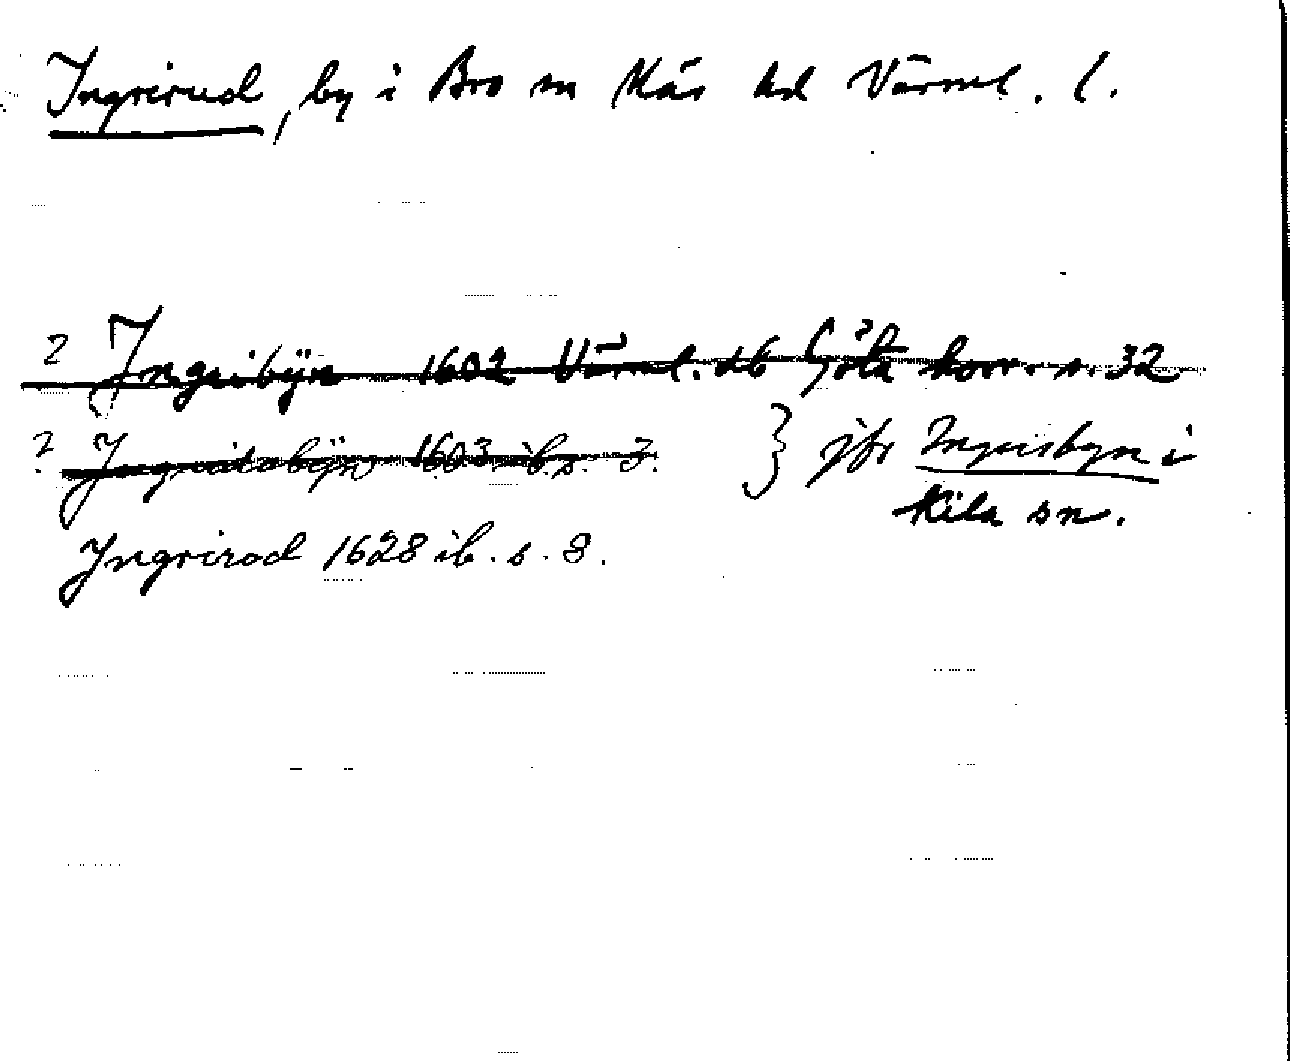 Ingrirud, by i Bro sn Näs hd Värml. l.
? Ingribÿn 1602 Värml. db Göta korr. s. 32
? Ingridsbÿn 1603 ib. s. 3. } jfr Ingrisbyn i
Kila sn.
Ingrirod 1628 ib. s. 8.